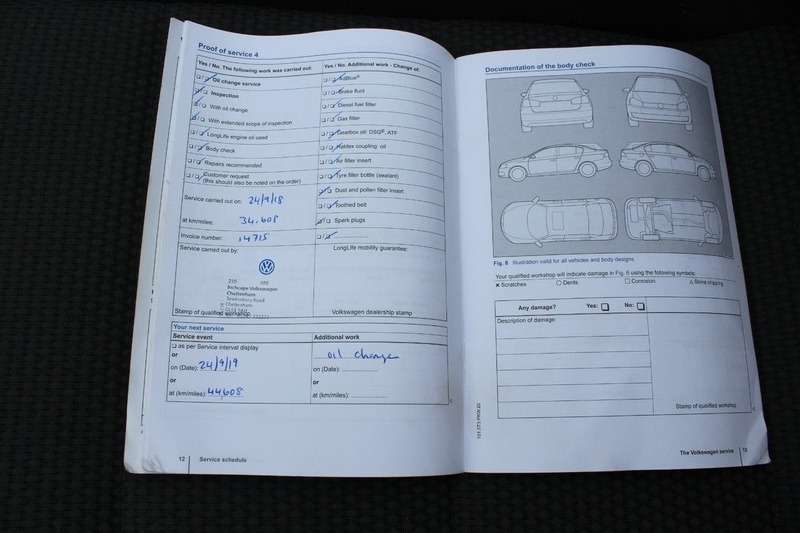 Proof of service 4
Yes / No. The following work was carried out:
Yes / No. Additional work - Change of:
Oil change service
Inspection
With oil change
With extended scope of inspection
LongLife engine oil used
Body check
Repairs recommended
Customer request
(this should also be noted on the order)
AdBlue®
Brake fluid
Diesel fuel filter
Gas filter
Gearbox oil: DSG®, ATF
Haldex coupling oil
Air filter insert
Tyre filler bottle (sealant)
Dust and pollen filter insert
Toothed belt
Spark plugs
Service carried out on: 24/9/18
at km/miles: 34.608
Invoice number: 14715
Service carried out by:
LongLife mobility guarantee:
Inchcape Volkswagen
Cheltenham
Tewkesbury Road
Cheltenham
Stamp of qualified workshop
Volkswagen dealership stamp
Your next service
Service event
Additional work
as per Service interval display
or
on (Date): 24/9/19
or
at (km/miles): 44,608
oil change
on (Date):
or
at (km/miles):
12
Service schedule
Documentation of the body check
Fig. 6 Illustration valid for all vehicles and body designs.
Your qualified workshop will indicate damage in Fig. 6 using the following symbols:
× Scratches
○ Dents
□ Corrosion
△ Stone chipping
Any damage? Yes: No:
Description of damage:
Stamp of qualified workshop
The Volkswagen service